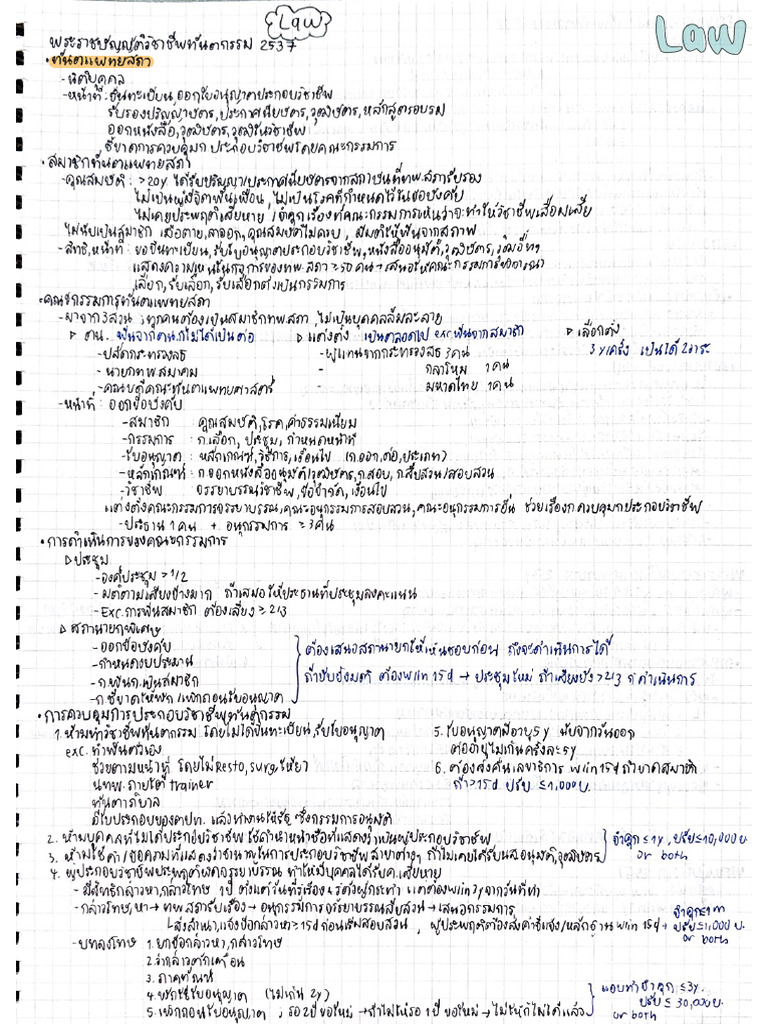 Law
Law
พระราชบัญญัติวิชาชีพทันตกรรม 2537
• ทันตแพทยสภา
- นิติบุคคล
- หน้าที่ : ขึ้นทะเบียน, ออกใบอนุญาตประกอบวิชาชีพ
รับรองปริญญาบัตร, ประกาศนียบัตร, วุฒิบัตร, หลักสูตรอบรม
ออกหนังสือ, วุฒิบัตร, วุฒิในวิชาชีพ
ชี้ขาดการควบคุมก ประกอบวิชาชีพโดยคณะกรรมการ
• สมาชิกทันตแพทยสภา
- คุณสมบัติ : >20y ได้รับปริญญา/ประกาศนียบัตรจากสถาบันที่ทพ.สภารับรอง
ไม่เป็นผู้มีจิตฟั่นเฟือน, ไม่เป็นโรคที่กำหนดไว้ในข้อบังคับ
ไม่เคยประพฤติเสียหาย / จำคุกเรื่องที่คณะกรรมการเห็นว่าจะทำให้วิชาชีพเสื่อมเสีย
ไม่นับเป็นสมาชิก เมื่อตาย, ลาออก, คุณสมบัติไม่ครบ, มีมติให้พ้นจากสภาพ
- สิทธิ, หน้าที่ : ขอขึ้นทะเบียน, รับใบอนุญาตประกอบวิชาชีพ, หนังสืออนุมัติ, วุฒิบัตร, วุฒิอื่นๆ
แสดงความเห็นในกิจการของทพ.สภา ≥50 คน → เสนอให้คณะกรรมการพิจารณา
เลือก, รับเลือก, รับเลือกตั้งเป็นกรรมการ
• คณะกรรมการทันตแพทยสภา
- มาจาก 3 ส่วน : ทุกคนต้องเป็นสมาชิกทพ.สภา, ไม่เป็นบุคคลล้มละลาย
▷ ตน. พ้นจากตน.ก็ไม่ได้เป็นต่อ ▷ แต่งตั้ง เป็นตลอดไป exc.พ้นจากสมาชิก ▷ เลือกตั้ง
- ปลัดกระทรวงสธ - ผู้แทนจากกระทรวงสธ 3 คน 3y/ครั้ง เป็นได้ 2 วาระ
- นายกทพ.สมาคม - กลาโหม 1 คน
- คณบดีคณะทันตแพทยศาสตร์ - มหาดไทย 1 คน
- หน้าที่ : ออกข้อบังคับ
- สมาชิก : คุณสมบัติ, โรค, ค่าธรรมเนียม
- กรรมการ : ก.เลือก, ประชุม, กำหนดหน้าที่
- ใบอนุญาต : หลักเกณฑ์, วิธีการ, เงื่อนไข (ก.ออก, ต่อ, ประเภท)
- หลักเกณฑ์ : ก.ออกหนังสืออนุมัติ/วุฒิบัตร, ก.สอบ, ก.สืบสวน/สอบสวน
- วิชาชีพ : จรรยาบรรณวิชาชีพ, ข้อจำกัด, เงื่อนไข
แต่งตั้งคณะกรรมการจรรยาบรรณ, คณะอนุกรรมการสอบสวน, คณะอนุกรรมการอื่น ช่วยเรื่องก.ควบคุมกประกอบวิชาชีพ
- ประธาน 1 คน + อนุกรรมการ ≥3 คน
• การดำเนินการของคณะกรรมการ
▷ ประชุม
- องค์ประชุม >1/2
- มติตามเสียงข้างมาก ถ้าเสมอให้ประธานที่ประชุมลงคะแนน
- Exc. การพ้นสมาชิก ต้องเสียง ≥ 2/3
▷ สภานายกพิเศษ
- ออกข้อบังคับ
- กำหนดงบประมาณ
- ก.พ้นก.เป็นสมาชิก
- ก.ชี้ขาดให้พัก/เพิกถอนใบอนุญาต
ต้องเสนอสภานายกให้เห็นชอบก่อน ถึงจะดำเนินการได้
ถ้ายับยั้งมติ ต้อง w/in 15d → ประชุมใหม่ ถ้าเสียงยัง >2/3 ก็ดำเนินการ
• การควบคุมการประกอบวิชาชีพทันตกรรม
1. ห้ามทำวิชาชีพทันตกรรม โดยไม่ได้ขึ้นทะเบียน, รับใบอนุญาต
exc. ทำฟันตัวเอง
ช่วยตามหน้าที่ โดยไม่ Resto, surg, ให้ยา
นทพ. ภายใต้ trainer
ทันตาภิบาล
มีใบประกอบของตปท. แล้วทำงานให้รัฐ ซึ่งกรรมการอนุมัติ
5. ใบอนุญาตมีอายุ 5y นับจากวันออก
ต่ออายุไม่เกินครั้งละ 5y
6. ต้องส่งคืนเลขาธิการ w/in 15d ถ้าขาดสมาชิก
ถ้า >15d ปรับ ≤1,000 บ.
2. ห้ามบุคคลที่ไม่ได้ประกอบวิชาชีพ ใช้คำนำหน้าชื่อที่แสดงว่าเป็นผู้ประกอบวิชาชีพ
3. ห้ามใช้คำ/ข้อความที่แสดงว่าชำนาญในการประกอบวิชาชีพสาขาต่างๆ ถ้าไม่เคยได้รับนส.อนุมัติ, วุฒิบัตร
จำคุก ≤1y, ปรับ ≤10,000 บ.
or both
4. ผู้ประกอบวิชาชีพประพฤติผิดจรรยาบรรณ ทำให้มีบุคคลได้รับค.เสียหาย
- มีสิทธิกล่าวหา, กล่าวโทษ 1 ปี ตั้งแต่วันที่รู้เรื่อง & รู้ตัวผู้กระทำ แต่ต้อง w/in 3y จากวันที่ทำ
- กล่าวโทษ, หา → ทพ.สภารับเรื่อง → อนุกรรมการจรรยาบรรณสืบสวน → เสนอกรรมการ
ส่งสำเนา, แจ้งข้อกล่าวหา ≥15d ก่อนเริ่มสอบสวน, ผู้ประพฤติต้องส่งคำชี้แจง/หลักฐาน w/in 15d →
จำคุก ≤1m
ปรับ ≤1,000 บ.
or both
- บทลงโทษ 1. ยกข้อกล่าวหา, กล่าวโทษ
2. ว่ากล่าวตักเตือน
3. ภาคทัณฑ์
4. พักใช้ใบอนุญาต (ไม่เกิน 2y)
5. เพิกถอนใบอนุญาต, รอ 2 ปีขอใหม่ → ถ้าไม่ให้รอ 1 ปี ขอใหม่ → ไม่ให้ก็ไม่ได้แล้ว
แอบทำจำคุก ≤3y.
ปรับ ≤ 30,000 บ.
or both